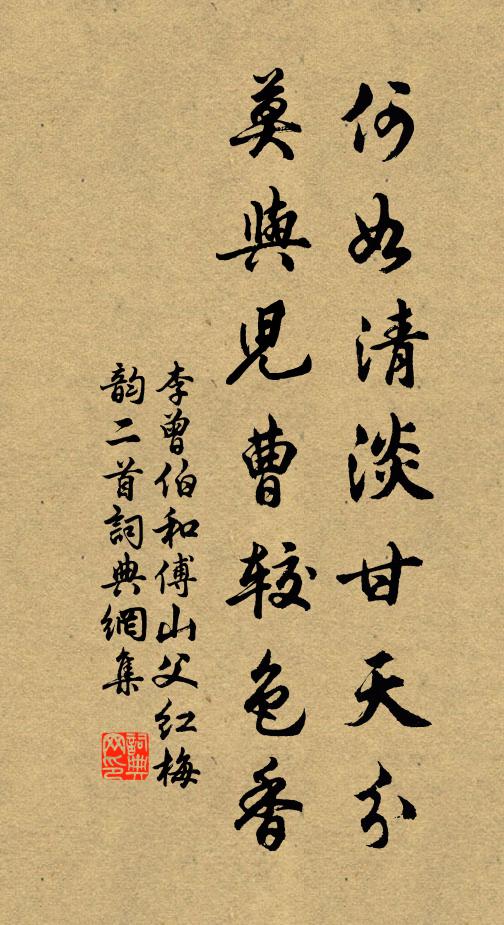 何如清淡甘天分
莫與兒曹較色香
李曾伯和傅山父红梅
韵二首詞典網集
詞典网印